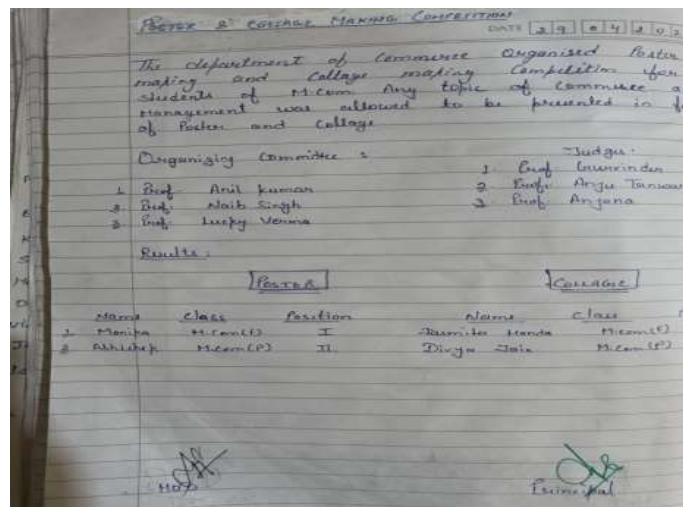 Poster & Collage Making Competition
DATE 29 04 202
The department of Commerce Organised Poster
making and Collage making Competition for
students of M.Com. Any topic of Commerce a
Management was allowed to be presented in f
of Poster and Collage
Organizing Committee :
Judges:
1 Prof. Anil Kumar
2 Prof. Naib Singh
3 Prof. Lucky Verma
1. Prof. Gurvinder
2. Prof. Anju Tanwar
3 Prof. Anjana
Results:
POSTER
Name Class Position
1 Monika M.Com(F) I
2 Abhishek M.Com(P) II
COLLAGE
Name Class
Jasmita Handa M.Com(F)
Divya Jain M.Com(P)
HOD
Principal